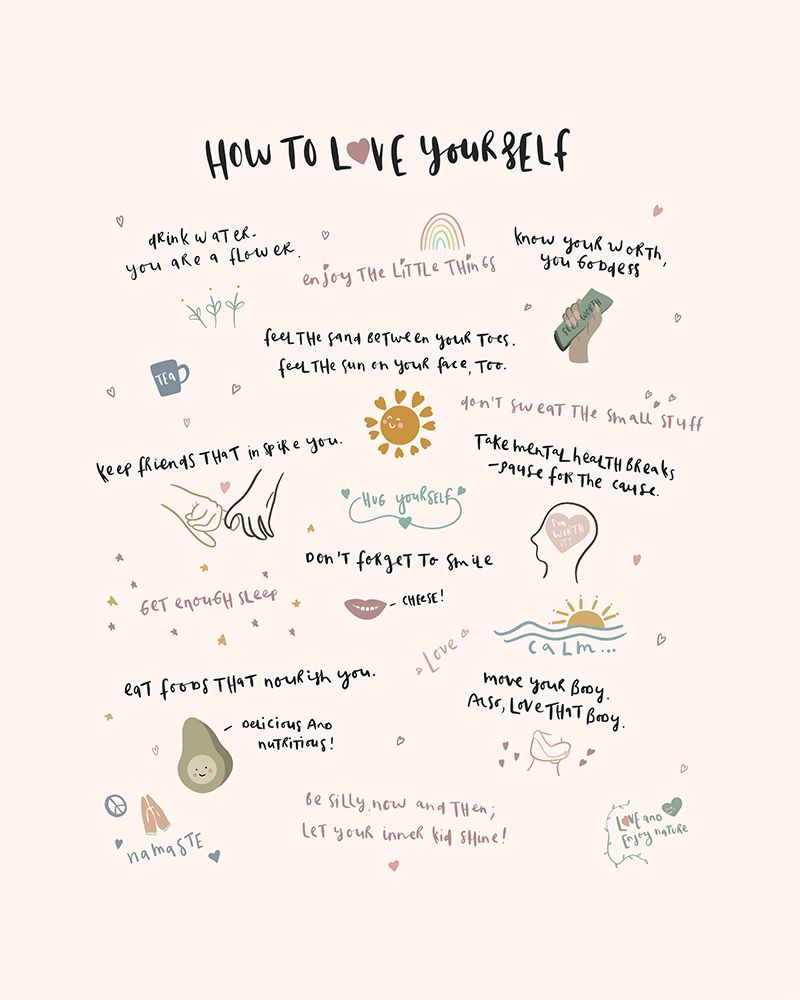 HOW TO LOVE YOURSELF
drink water-
you are a flower.
enjoy THE LITTLE THINGS
know your worth,
you GODDESS
SELF WORTH
feel THE sand BETWEEN your TOES.
feel THE sun on your face, TOO.
TEA
don't sweat THE small stuff
keep friends THAT inspire you.
Take mental health Breaks
-pause for the cause.
HUG yourself
I'm
WORTH
IT!
DON'T forget To smile
GET enough SLEEP
- CHEESE!
CALM...
Love
eat foods THAT nourish you.
move your Body.
Also, LOVE THAT Body.
- DELICIOUS AND
nutritious!
Be silly, now and Then;
LET your inner kid SHINE!
LOVE and
Enjoy nature
namaste